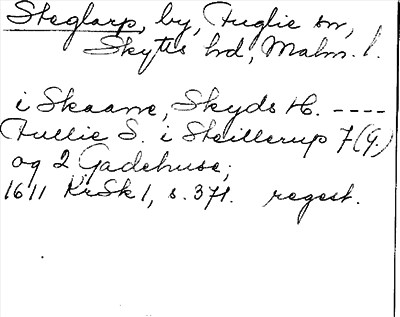 Steglarp, by, Fuglie sn,
Skytts hd, Malm. l.
i Skaane, Skyds H. ----
Fullie S. i Steillerup 7 (G.)
og 2 Gadehuse;
1611 KrSk 1, s. 371. regest.